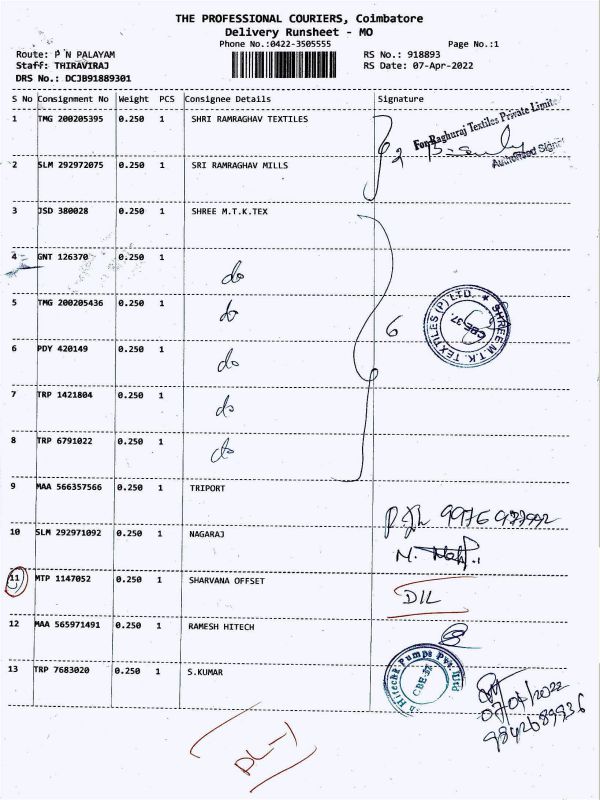 THE PROFESSIONAL COURIERS, Coimbatore
Delivery Runsheet - MO
Phone No.:0422-3505555 Page No.:1
Route: P N PALAYAM RS No.: 918893
Staff: THIRAVIRAJ RS Date: 07-Apr-2022
DRS No.: DCJB91889301
S No Consignment No Weight PCS Consignee Details Signature
1 TMG 200205395 0.250 1 SHRI RAMRAGHAV TEXTILES
For Raghuraj Textiles Private Limite
2
Authorised Sign
2 SLM 292972075 0.250 1 SRI RAMRAGHAV MILLS
3 JSD 380028 0.250 1 SHREE M.T.K.TEX
4 GNT 126370 0.250 1 do
5 TMG 200205436 0.250 1 do
6
SHREE M.T.K. TEXTILES (P) LTD. ★
CBE-37.
6 PDY 420149 0.250 1 do
7 TRP 1421804 0.250 1 do
8 TRP 6791022 0.250 1 do
9 MAA 566357566 0.250 1 TRIPORT
10 SLM 292971092 0.250 1 NAGARAJ
11 MTP 1147052 0.250 1 SHARVANA OFFSET
D/L
12 MAA 565971491 0.250 1 RAMESH HITECH
Hitech Pumps Pvt. Ltd
CBE-37
13 TRP 7683020 0.250 1 S.KUMAR
07/04/2022
9842689936
DL-1